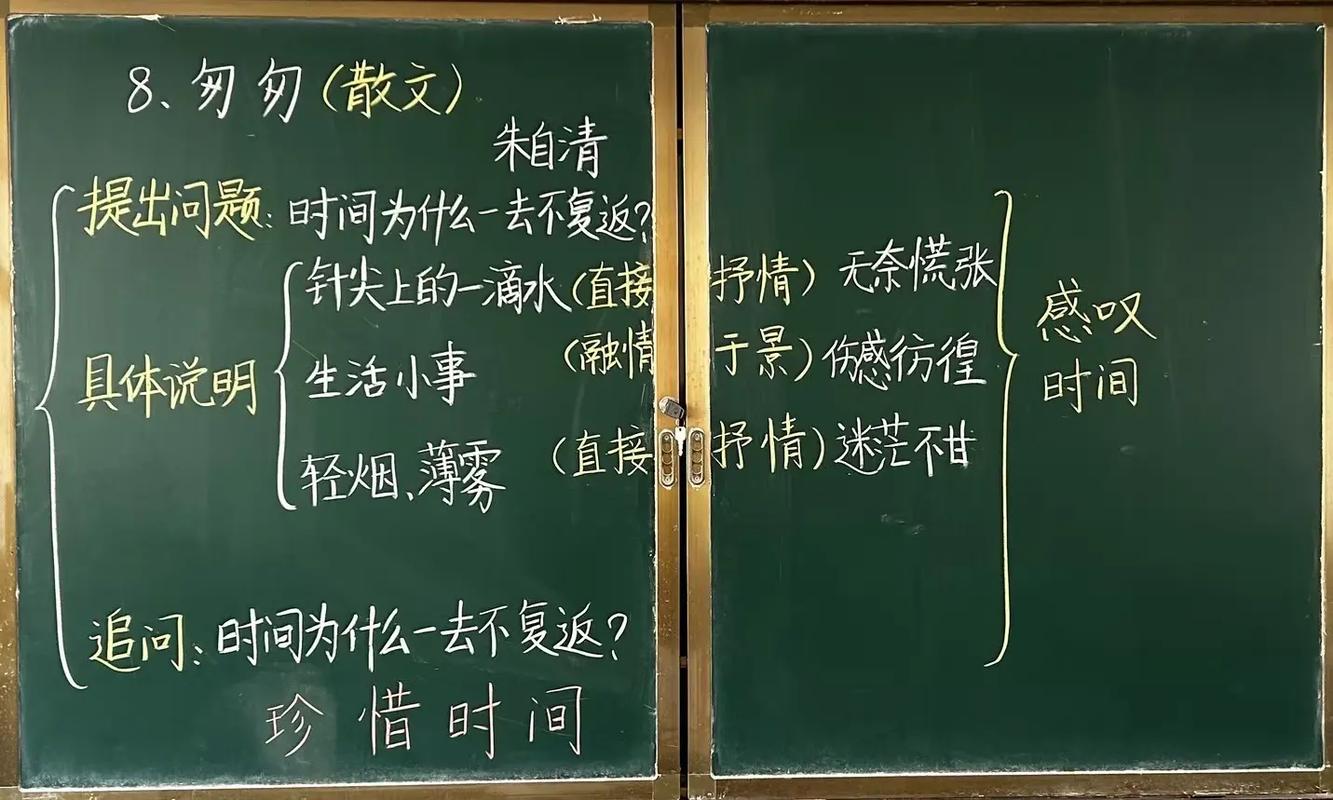 8、匆匆(散文)
朱自清
提出问题:时间为什么一去不复返?
具体说明
针尖上的一滴水(直接抒情)无奈慌张
生活小事(融情于景)伤感彷徨
轻烟、薄雾(直接抒情)迷茫不甘
追问:时间为什么一去不复返?
珍惜时间
感叹
时间